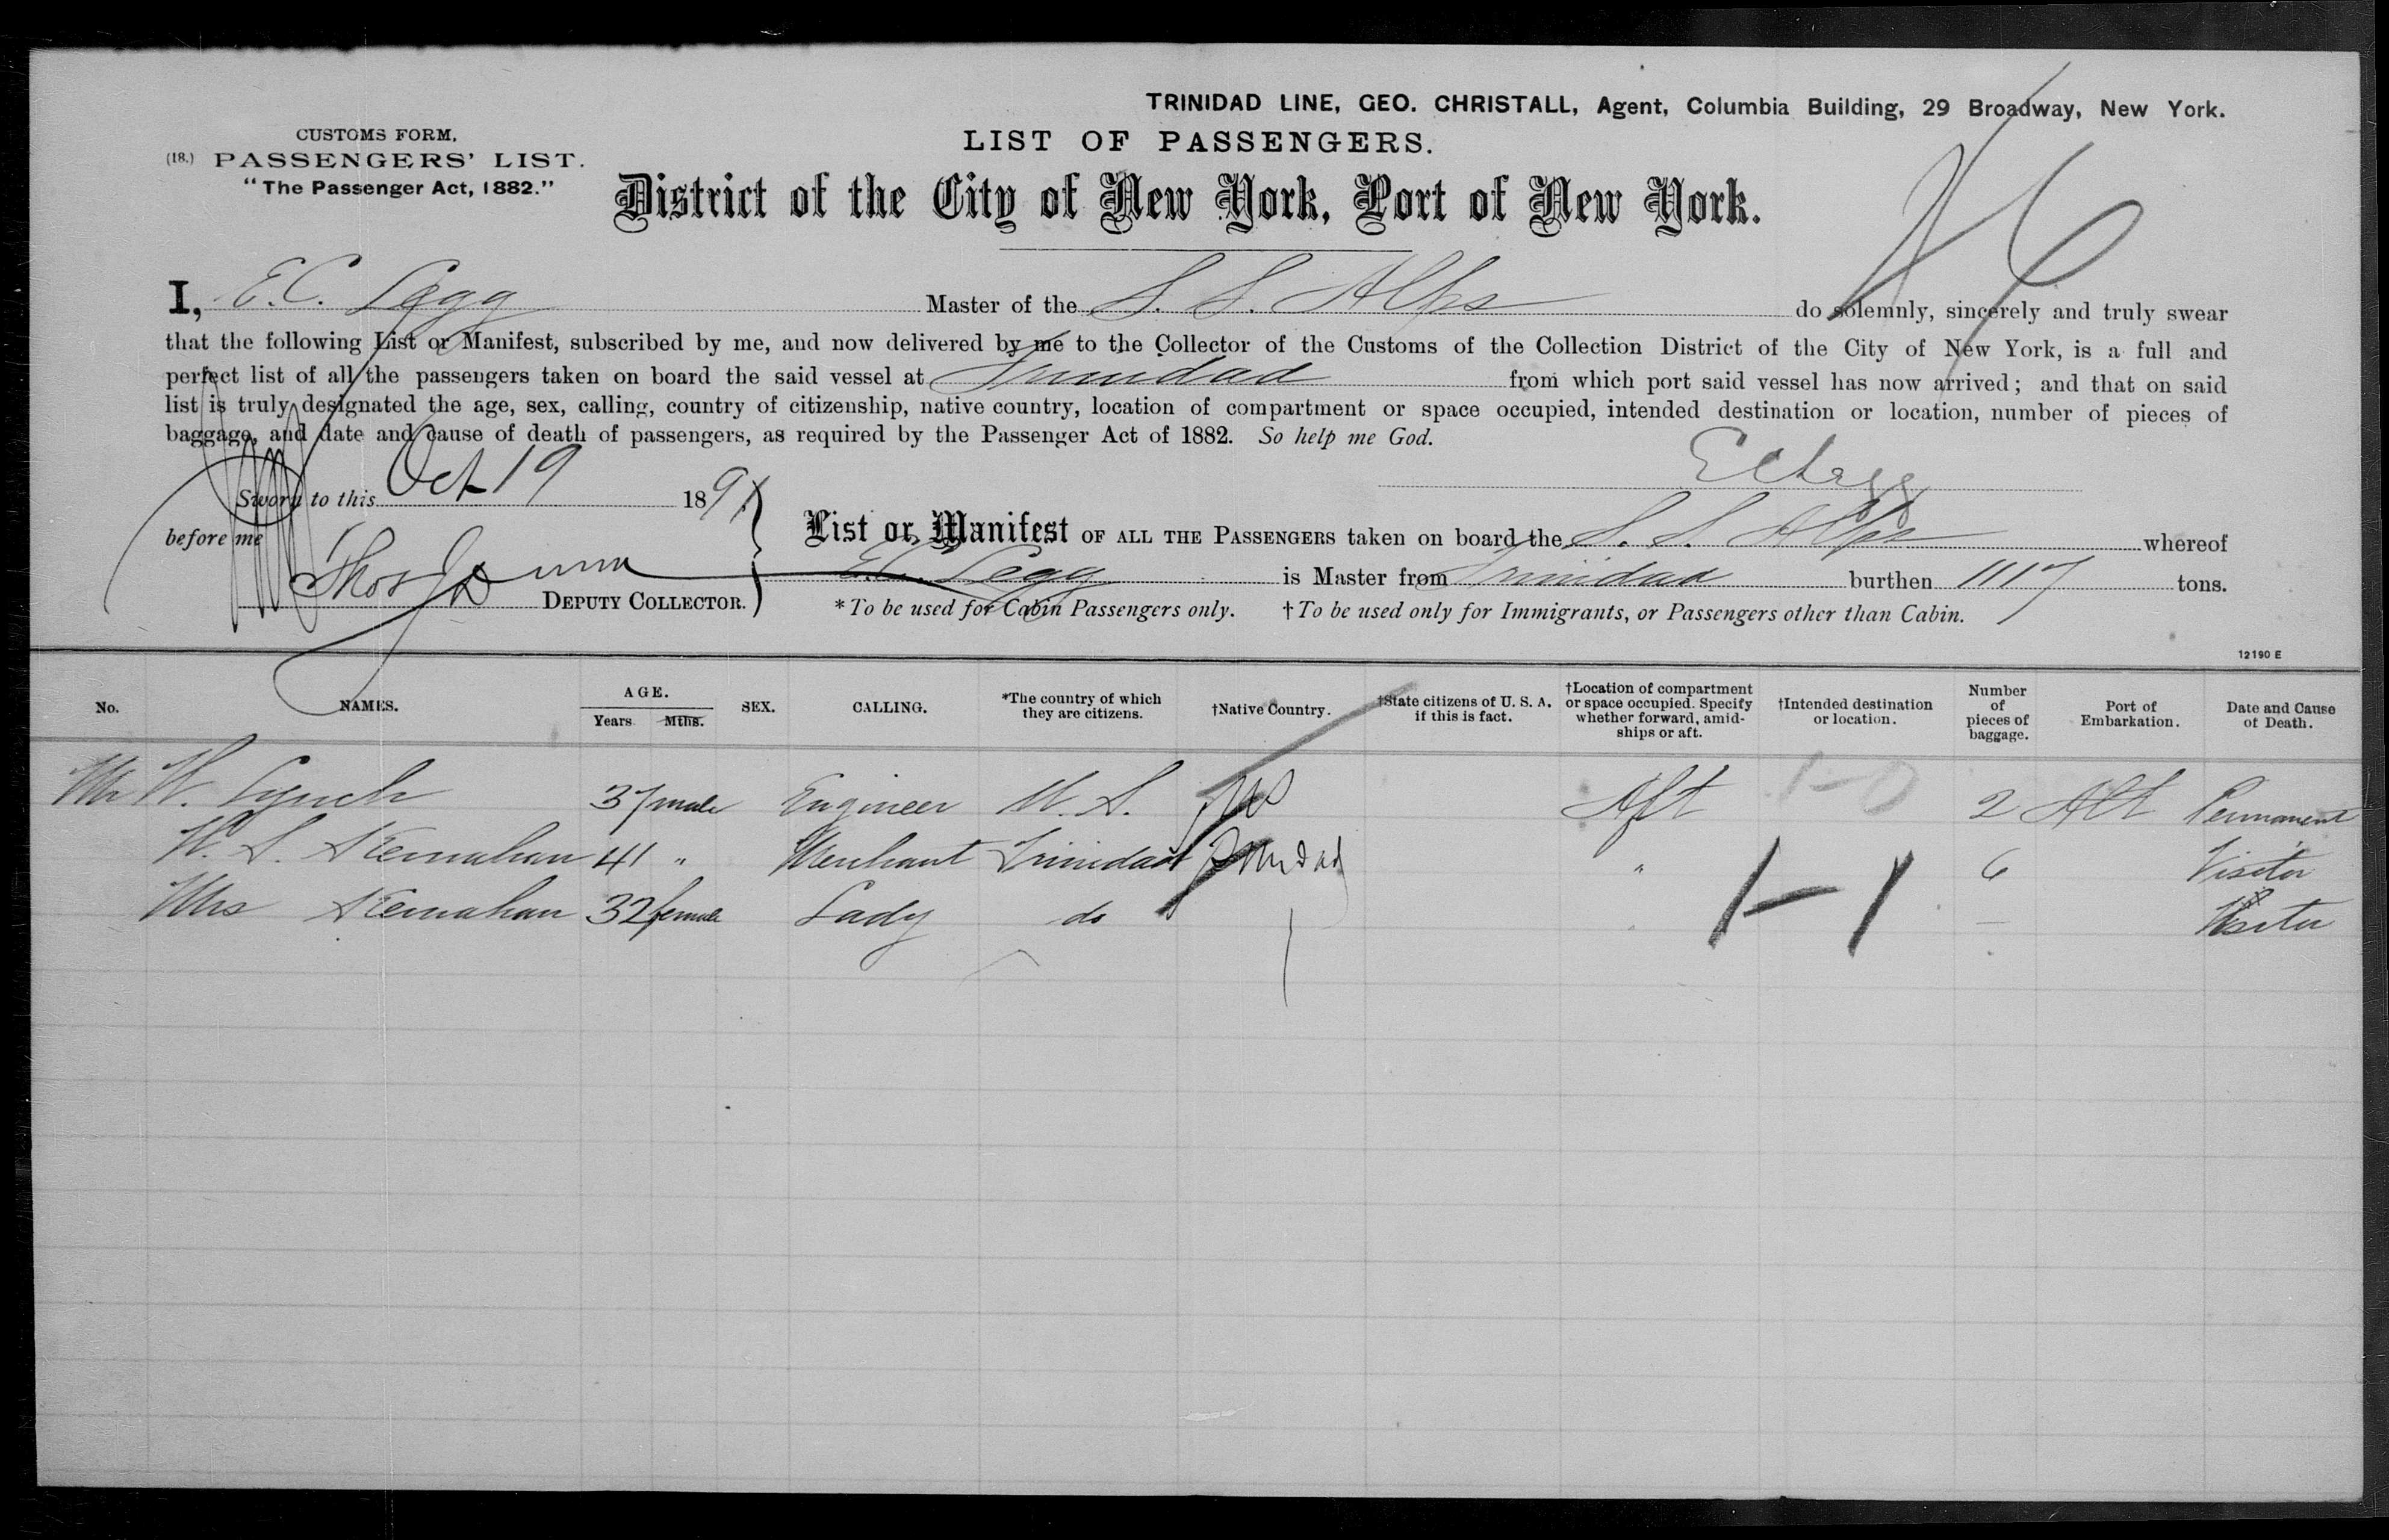 TRINIDAD LINE, GEO. CHRISTALL, Agent, Columbia Building, 29 Broadway, New York.
CUSTOMS FORM,
(18.) PASSENGERS' LIST.
"The Passenger Act, 1882."
LIST OF PASSENGERS.
District of the City of New York, Port of New York.
I, E. C. Legg Master of the S. S. Alps do solemnly, sincerely and truly swear
that the following List or Manifest, subscribed by me, and now delivered by me to the Collector of the Customs of the Collection District of the City of New York, is a full and
perfect list of all the passengers taken on board the said vessel at Trinidad from which port said vessel has now arrived; and that on said
list is truly designated the age, sex, calling, country of citizenship, native country, location of compartment or space occupied, intended destination or location, number of pieces of
baggage, and date and cause of death of passengers, as required by the Passenger Act of 1882. So help me God.
E C Legg
Sworn to this Oct 19 1891
before me
Thos
DEPUTY COLLECTOR.
List or Manifest OF ALL THE PASSENGERS taken on board the S. S. Alps whereof
E. C. Legg is Master from Trinidad burthen 1117 tons.
*To be used for Cabin Passengers only. †To be used only for Immigrants, or Passengers other than Cabin.
12190 E
No. NAMES. AGE. Years Mths. SEX. CALLING. *The country of which they are citizens. †Native Country. †State citizens of U. S. A. if this is fact. †Location of compartment or space occupied. Specify whether forward, amidships or aft. †Intended destination or location. Number of pieces of baggage. Port of Embarkation. Date and Cause of Death.
Mr W. Lynch 37 male Engineer U. S. US Aft 1-0 2 Permanent
W. S. Kernahan 41 " Merchant Trinidad Trinidad " 6 Visitor
Mrs Kernahan 32 female Lady do 1-1 - Visitor